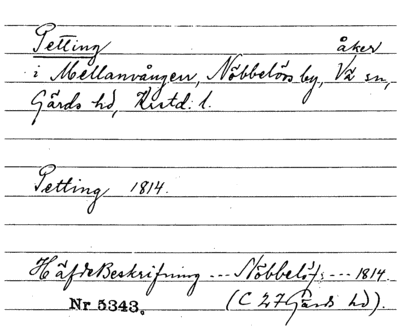 Petting åker
i Mellanvången, Nöbbelövs by, Vä sn,
Gärds hd, Krstd. l.
Petting 1814.
HäfdeBeskrifning --- Nöbbelöfs --- 1814
Nr 5343. (C 27 Gärds hd).